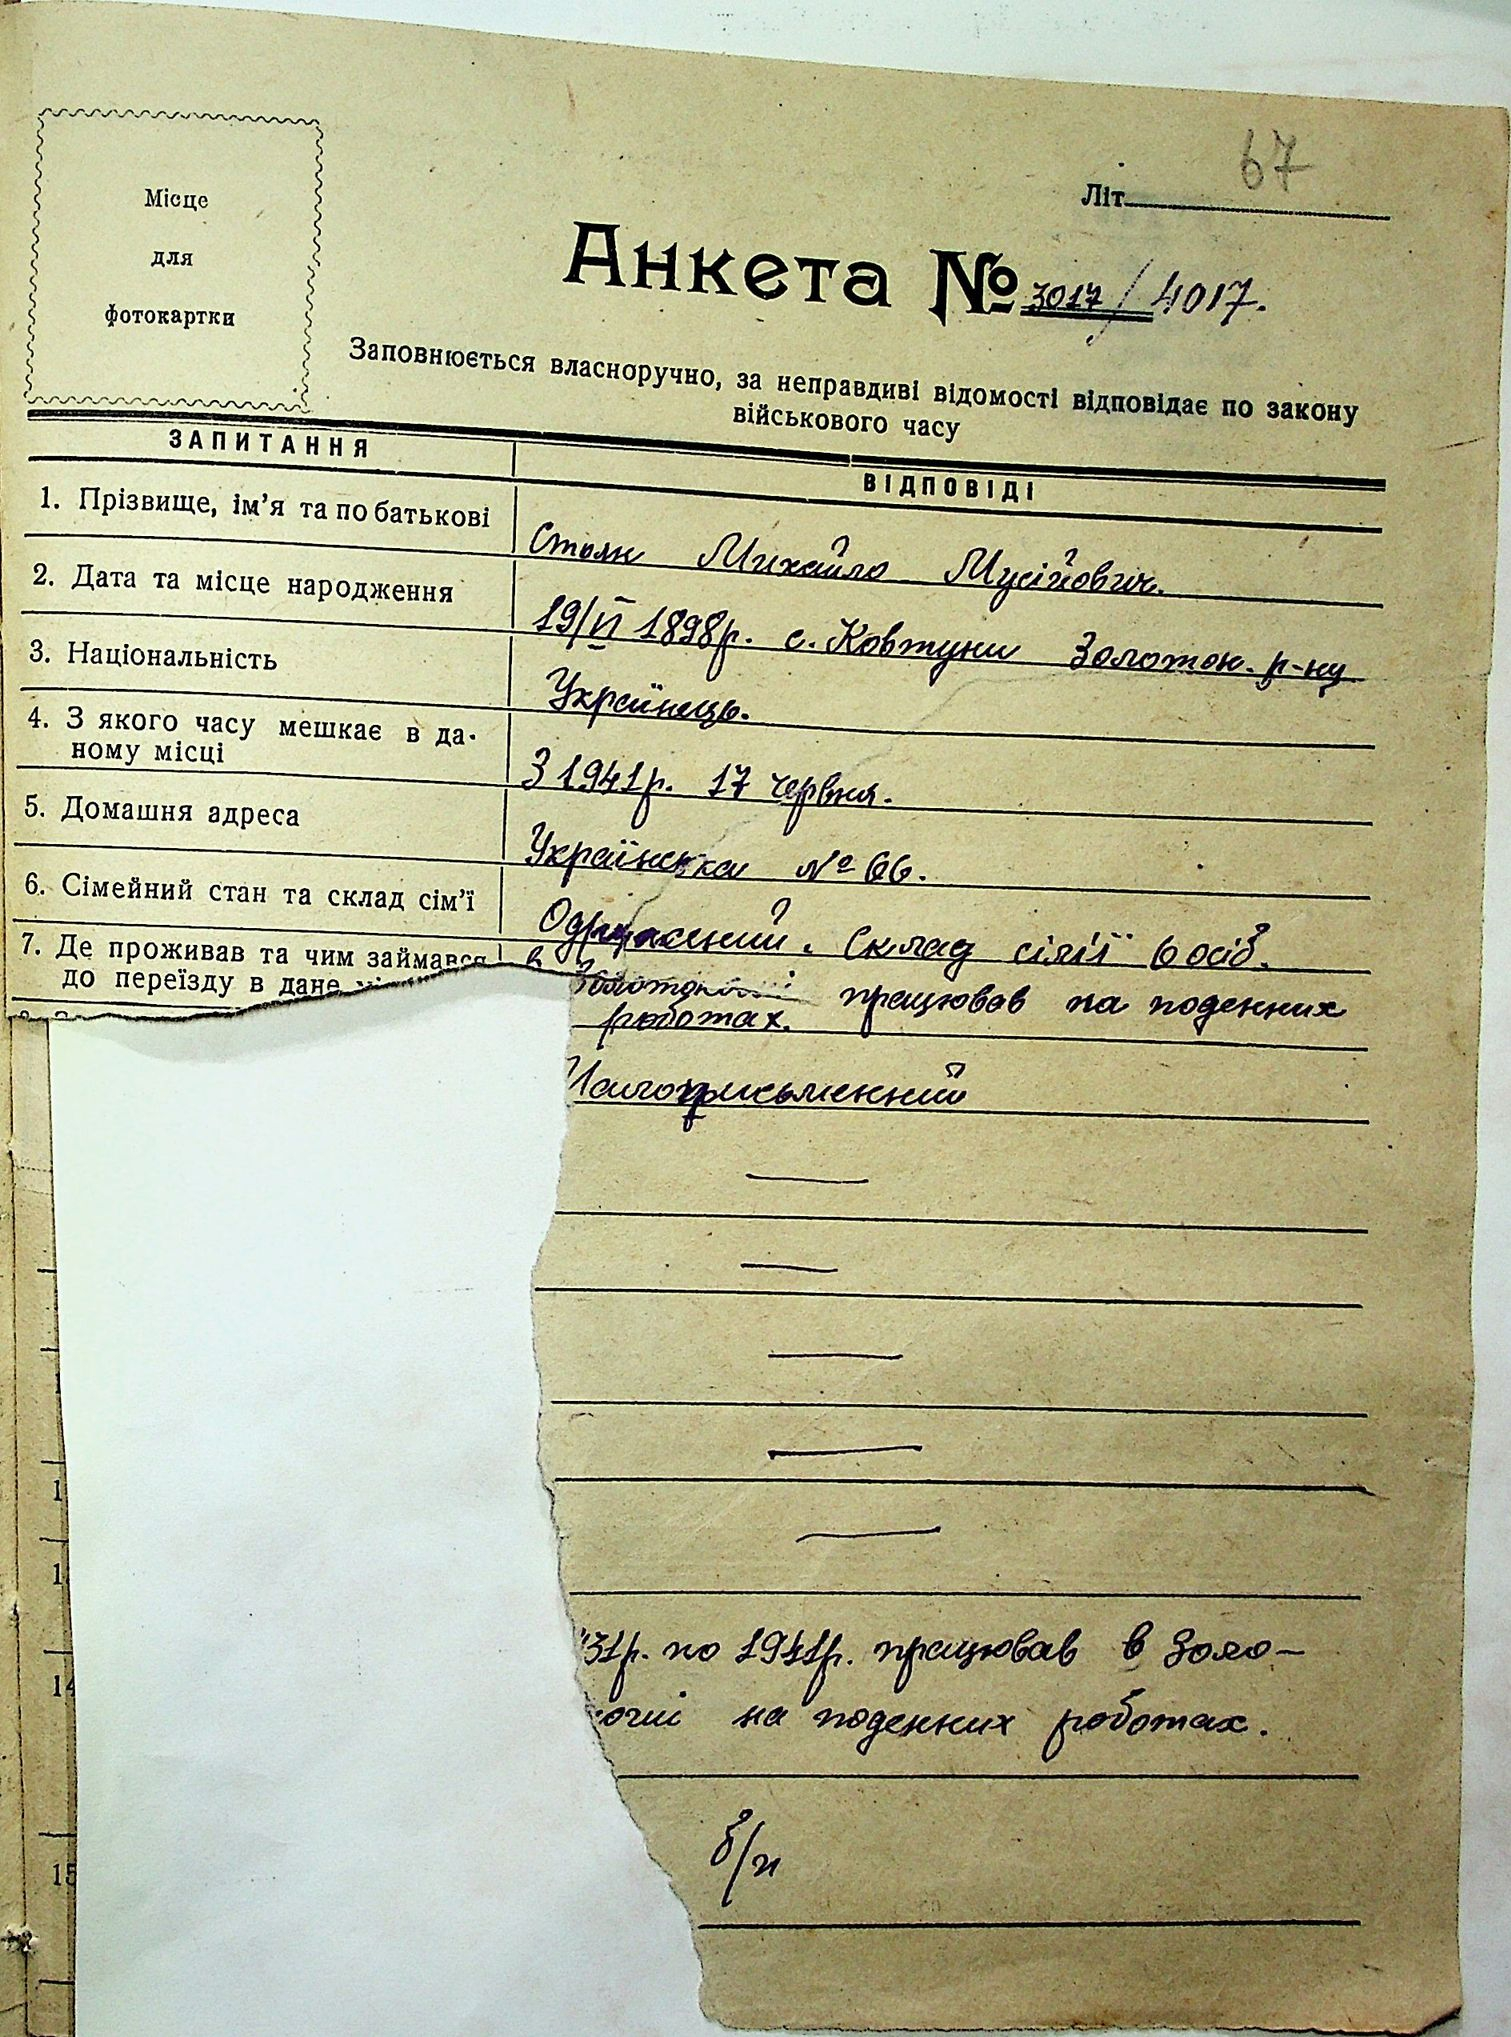 67
Літ
Місце
для
фотокартки
Анкета № 3017/4017.
Заповнюється власноручно, за неправдиві відомості відповідає по закону
військового часу
ЗАПИТАННЯ
ВІДПОВІДІ
1. Прізвище, ім'я та по батькові
Стоян Михайло Мусійович.
2. Дата та місце народження
19/VI 1898р. с. Ковтуни Золотон. р-ну
3. Національність
Українець.
4. З якого часу мешкає в да-
ному місці
З 1941р. 17 червня.
5. Домашня адреса
Українська № 66.
6. Сімейний стан та склад сім'ї
Одружений. Склад сім'ї 6 осіб.
7. Де проживав та чим займався
до переїзду в дане
в Золотоноші працював на поденних
роботах.
Малописьменний
31р. по 1941р. працював в Золо-
ноші на поденних роботах.
14
б/п
15